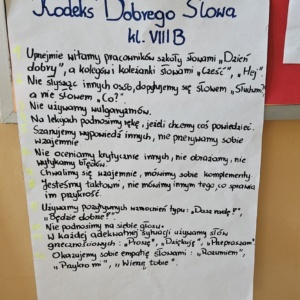 Kodeks Dobrego Słowa
kl. VIII B
Uprzejmie witamy pracowników szkoły słowami „Dzień
dobry", a kolegów i koleżanki słowami „Cześć", „Hej".
Nie słysząc innych osób, dopytujemy się słowem „Słucham?"
a nie słowem „Co?"
Nie używamy wulgaryzmów.
Na lekcjach podnosimy rękę, jeżeli chcemy coś powiedzieć.
Szanujemy wypowiedź innych, nie przerywamy sobie
wzajemnie.
Nie oceniamy krytycznie innych, nie obrażamy, nie
wytykamy błędów.
Chwalimy się wzajemnie, mówimy sobie komplementy.
Jesteśmy taktowni, nie mówimy innym tego, co sprawia
im przykrość.
Używamy pozytywnych wzmocnień typu: „Dasz radę!",
„Będzie dobrze!".
Nie podnosimy na siebie głosu.
W każdej adekwatnej sytuacji używamy słów
grzecznościowych: „Proszę", „Dziękuję", „Przepraszam".
Okazujemy sobie empatię słowami: „Rozumiem",
„Przykro mi", „Wierzę tobie".